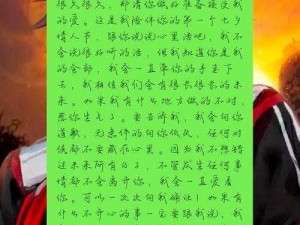 很久很久。那请你做好准备接受我
的爱。这是我陪伴你的第一个七夕
情人节，跟你说说心里话吧，我不
会说很好听的话，但我知道你是我
的全部，我会一直牵你的手走下
去，我相信我们会有很长很长的未
来。如果我有什么地方做的不对，
惹你生气了。要告诉我，我会向你
道歉，无条件的向你低头，任何时
候都不要藏在心里。因为我不想错
过未来所有日子，不管发生任何事
情都不会离开你，我会一直爱着
你。可以一次次向我确认！如果有
什么不开心的事一定要跟我说，我